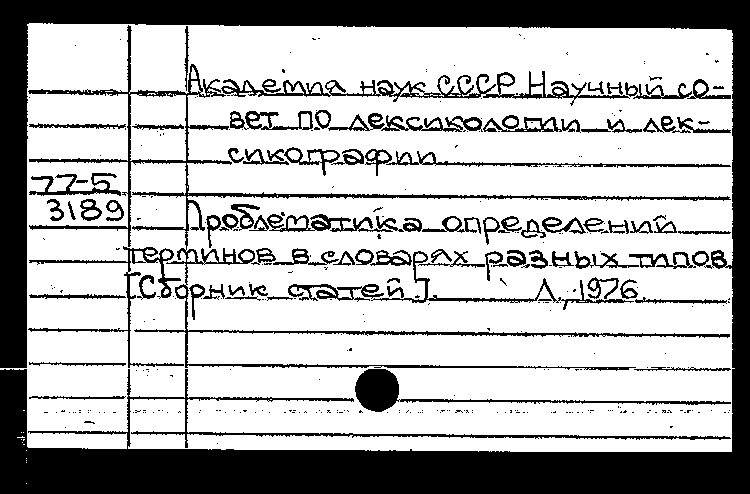 Академия наук СССР Научный со-
вет по лексикологии и лек-
сикографии.
77-5
3189
Проблематика определений
терминов в словарях разных типов
[Сборник статей]. Л., 1976.